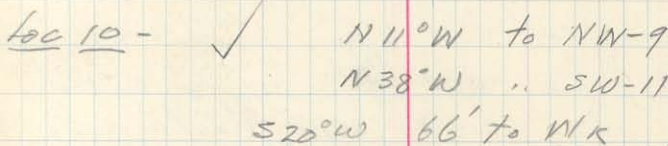 Loc 10 - √ N 11° W to NW-9
N 38° W " SW-11
S 20° W 66' to WK